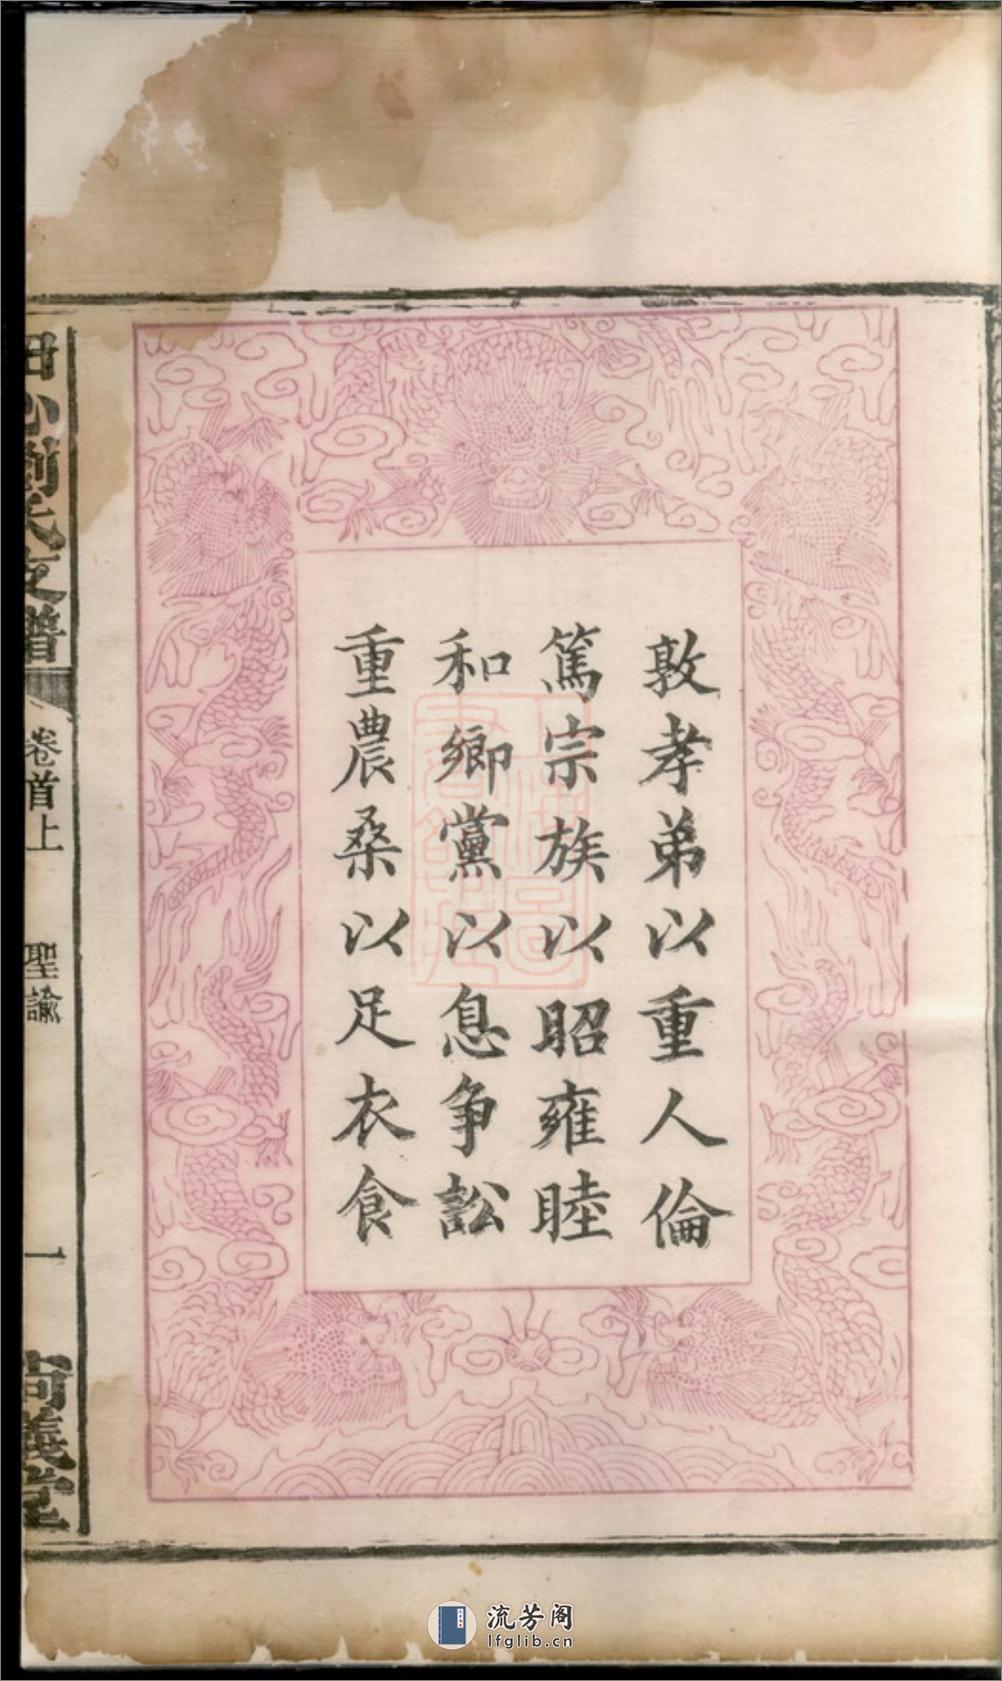 敦孝弟以重人倫
篤宗族以昭雍睦
和鄉黨以息争訟
重農桑以足衣食
田心劉氏支譜
卷首上
聖諭
一
尚義堂
流芳阁
lfglib.cn